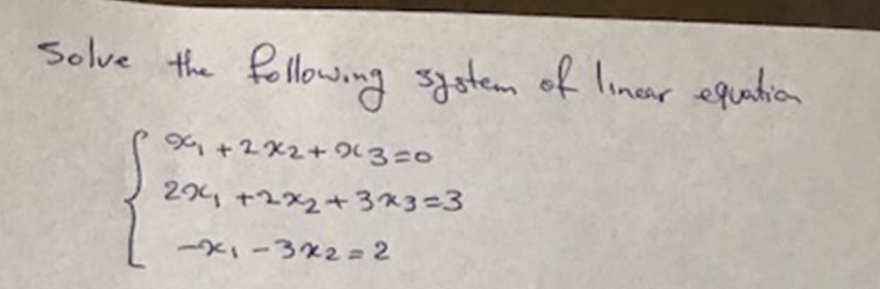 Solve the following system of linear equation
x₁ + 2x₂ + x₃ = 0
2x₁ + 2x₂ + 3x₃ = 3
-x₁ - 3x₂ = 2